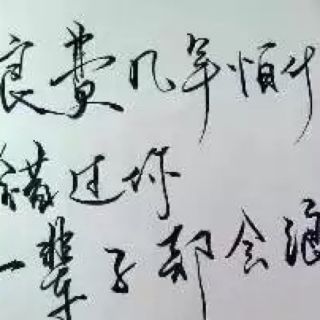 浪费几年怕什
错过你
一辈子都会浪